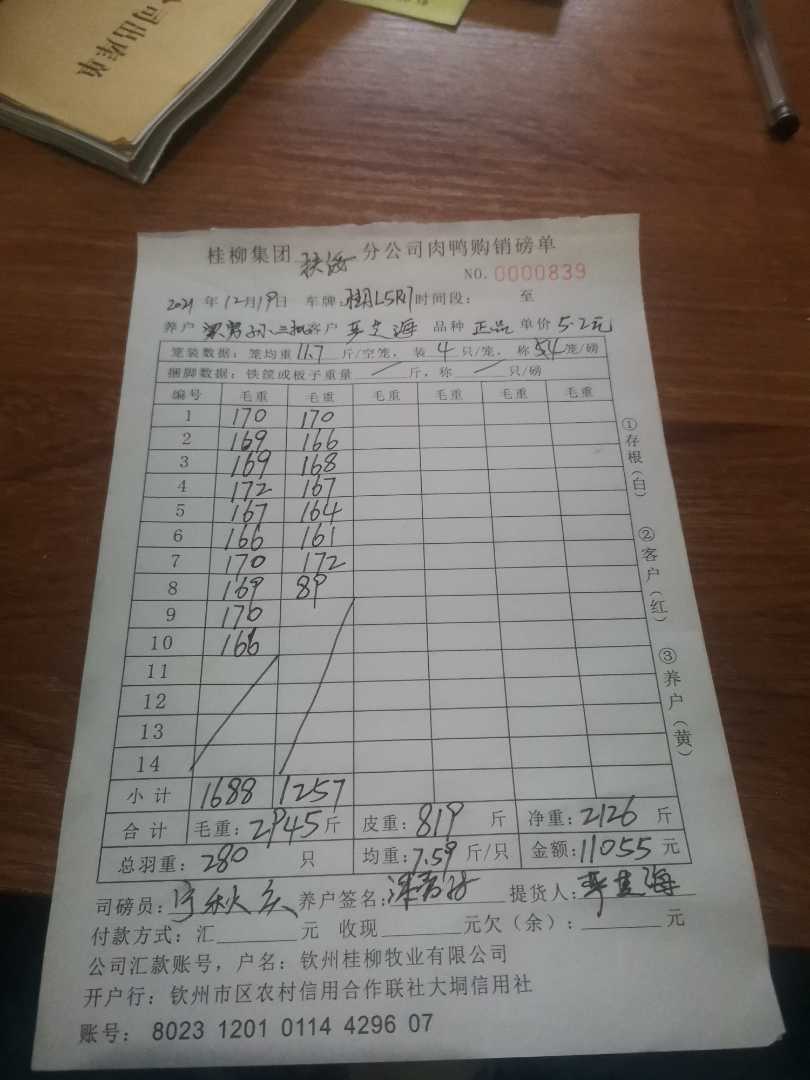 公司出库单
桂柳集团 扶海 分公司肉鸭购销磅单
NO. 0000839
2021 年 12 月 19 日 车牌: 时间段: 至
养户 客户 品种 正品 单价 5.2元
笼装数据: 笼均重 11.7 斤/空笼, 装 4 只/笼, 称 5.4 笼/磅
捆脚数据: 铁筐或板子重量 / 斤, 称 / 只/磅
编号 毛重 毛重 毛重 毛重 毛重 毛重
1 170 170
2 169 166
3 169 168
4 172 167
5 167 164
6 166 161
7 170 172
8 169 89
9 170
10 166
11
12
13
14
小计 1688 1257
合计 毛重: 2945 斤 皮重: 819 斤 净重: 2126 斤
总羽重: 280 只 均重: 7.59 斤/只 金额: 11055 元
司磅员: 养户签名: 提货人:
付款方式: 汇 元 收现 元欠(余): 元
公司汇款账号, 户名: 钦州桂柳牧业有限公司
开户行: 钦州市区农村信用合作联社大垌信用社
账号: 8023 1201 0114 4296 07
①存根(白)
②客户(红)
③养户(黄)